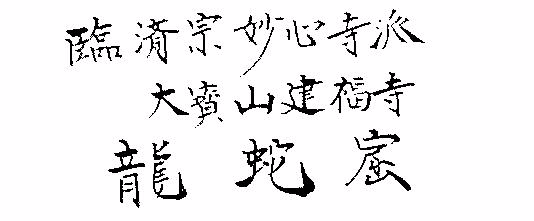 臨済宗妙心寺派
大寳山建福寺
龍蛇窟